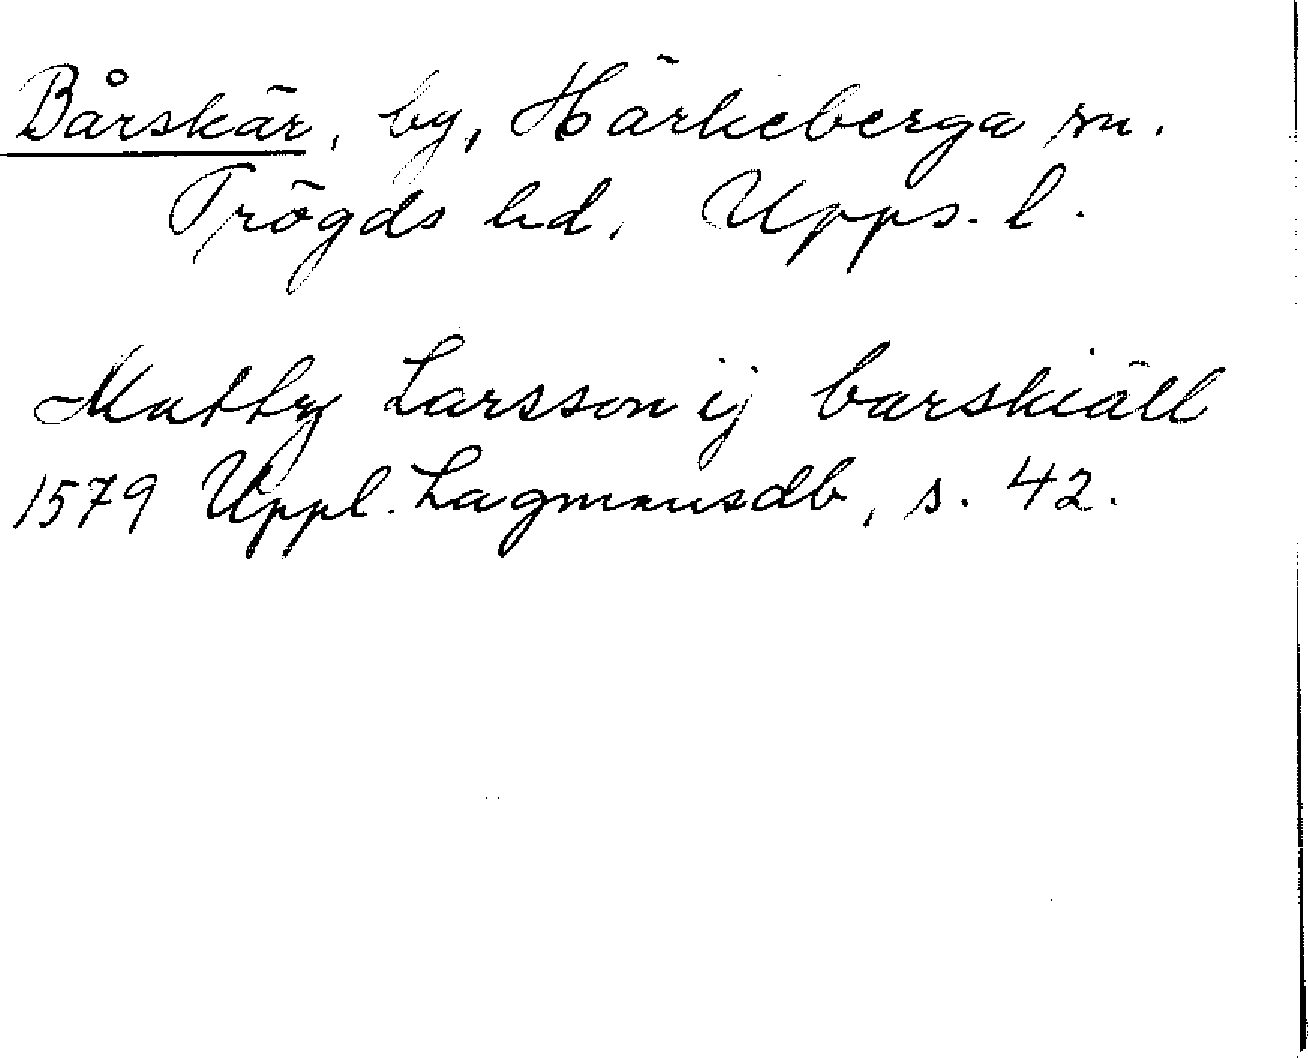 Bårskär, by, Härkeberga sn.
Trögds hd, Upps. l.
Mattz Larsson ij barskiäll
1579 Uppl. Lagmansdb, s. 42.